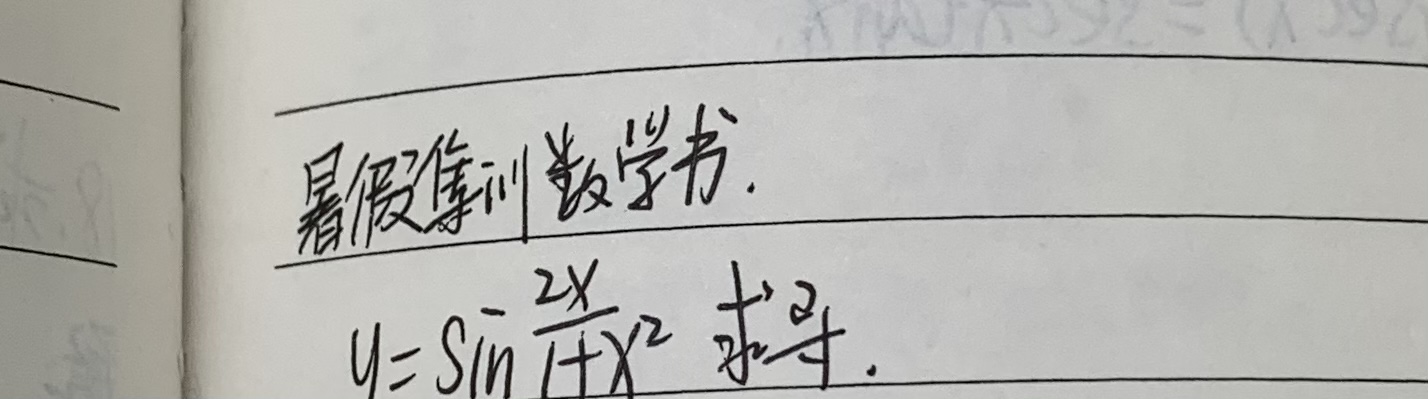 暑假集训数学书.
y = sin 2x/1+x² 求导.